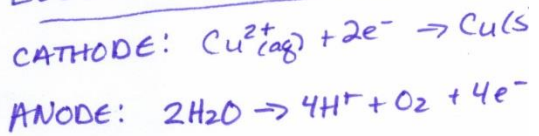 CATHODE: Cu²⁺(aq) + 2e⁻ → Cu(s
ANODE: 2H₂O → 4H⁺ + O₂ + 4e⁻